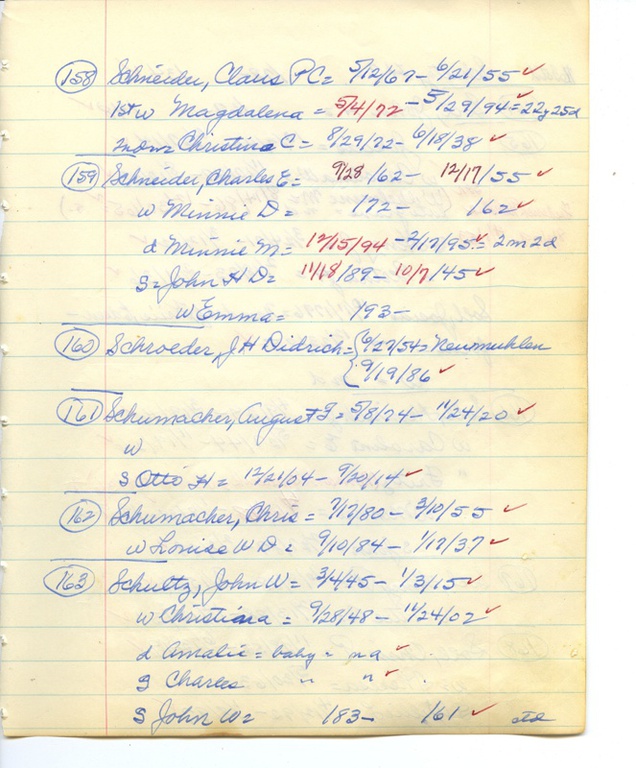 158 Schneider, Claus PC = 5/12/67 - 6/21/55 ✓
1st w Magdalena = 5/4/72 - 5/29/94 ✓ = 22y 25d
2nd w Christina C = 8/29/72 - 6/18/38 ✓
159 Schneider, Charles E = 9/28/62 - 12/17/55 ✓
w Minnie D = /72 - /62 ✓
d Minnie M = 12/15/94 - 2/17/95 ✓ = 2m 2d
s = John H D = 11/18/89 - 10/7/45 ✓
w Emma = /93 -
160 Schroeder, J H Didrich = { 6/27/54 = Neumuhlen
{ 9/19/86 ✓
161 Schumacher, August F = 5/8/74 - 11/24/20 ✓
w
S Otto H = 12/21/04 - 9/20/14 ✓
162 Schumacher, Chris = 7/17/80 - 3/10/55 ✓
w Louise W D = 9/10/84 - 1/17/37 ✓
163 Schultz, John W = 3/4/45 - 1/3/15 ✓
w Christiana = 9/28/48 - 11/24/02 ✓
d Amalie = baby = na ✓
S Charles " " ✓
S John W = /83 - /61 ✓